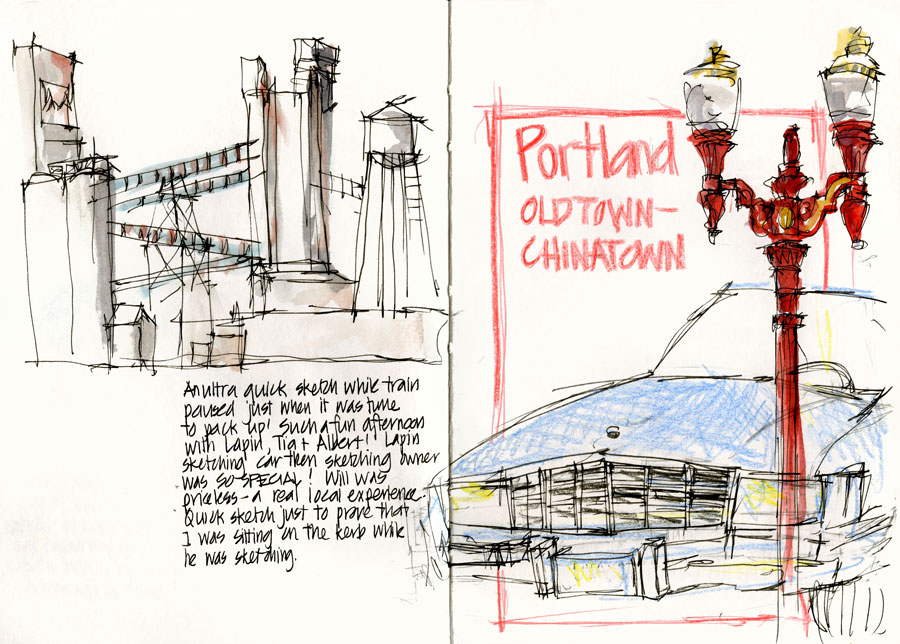 An ultra quick sketch while train
paused just when it was time
to pack up! Such a fun afternoon
with Lapin, Tia + Albert! Lapin
sketching car then sketching owner
was SO SPECIAL! Will was
priceless - a real local experience.
Quick sketch just to prove that
I was sitting on the kerb while
he was sketching.
Portland
OLDTOWN-
CHINATOWN